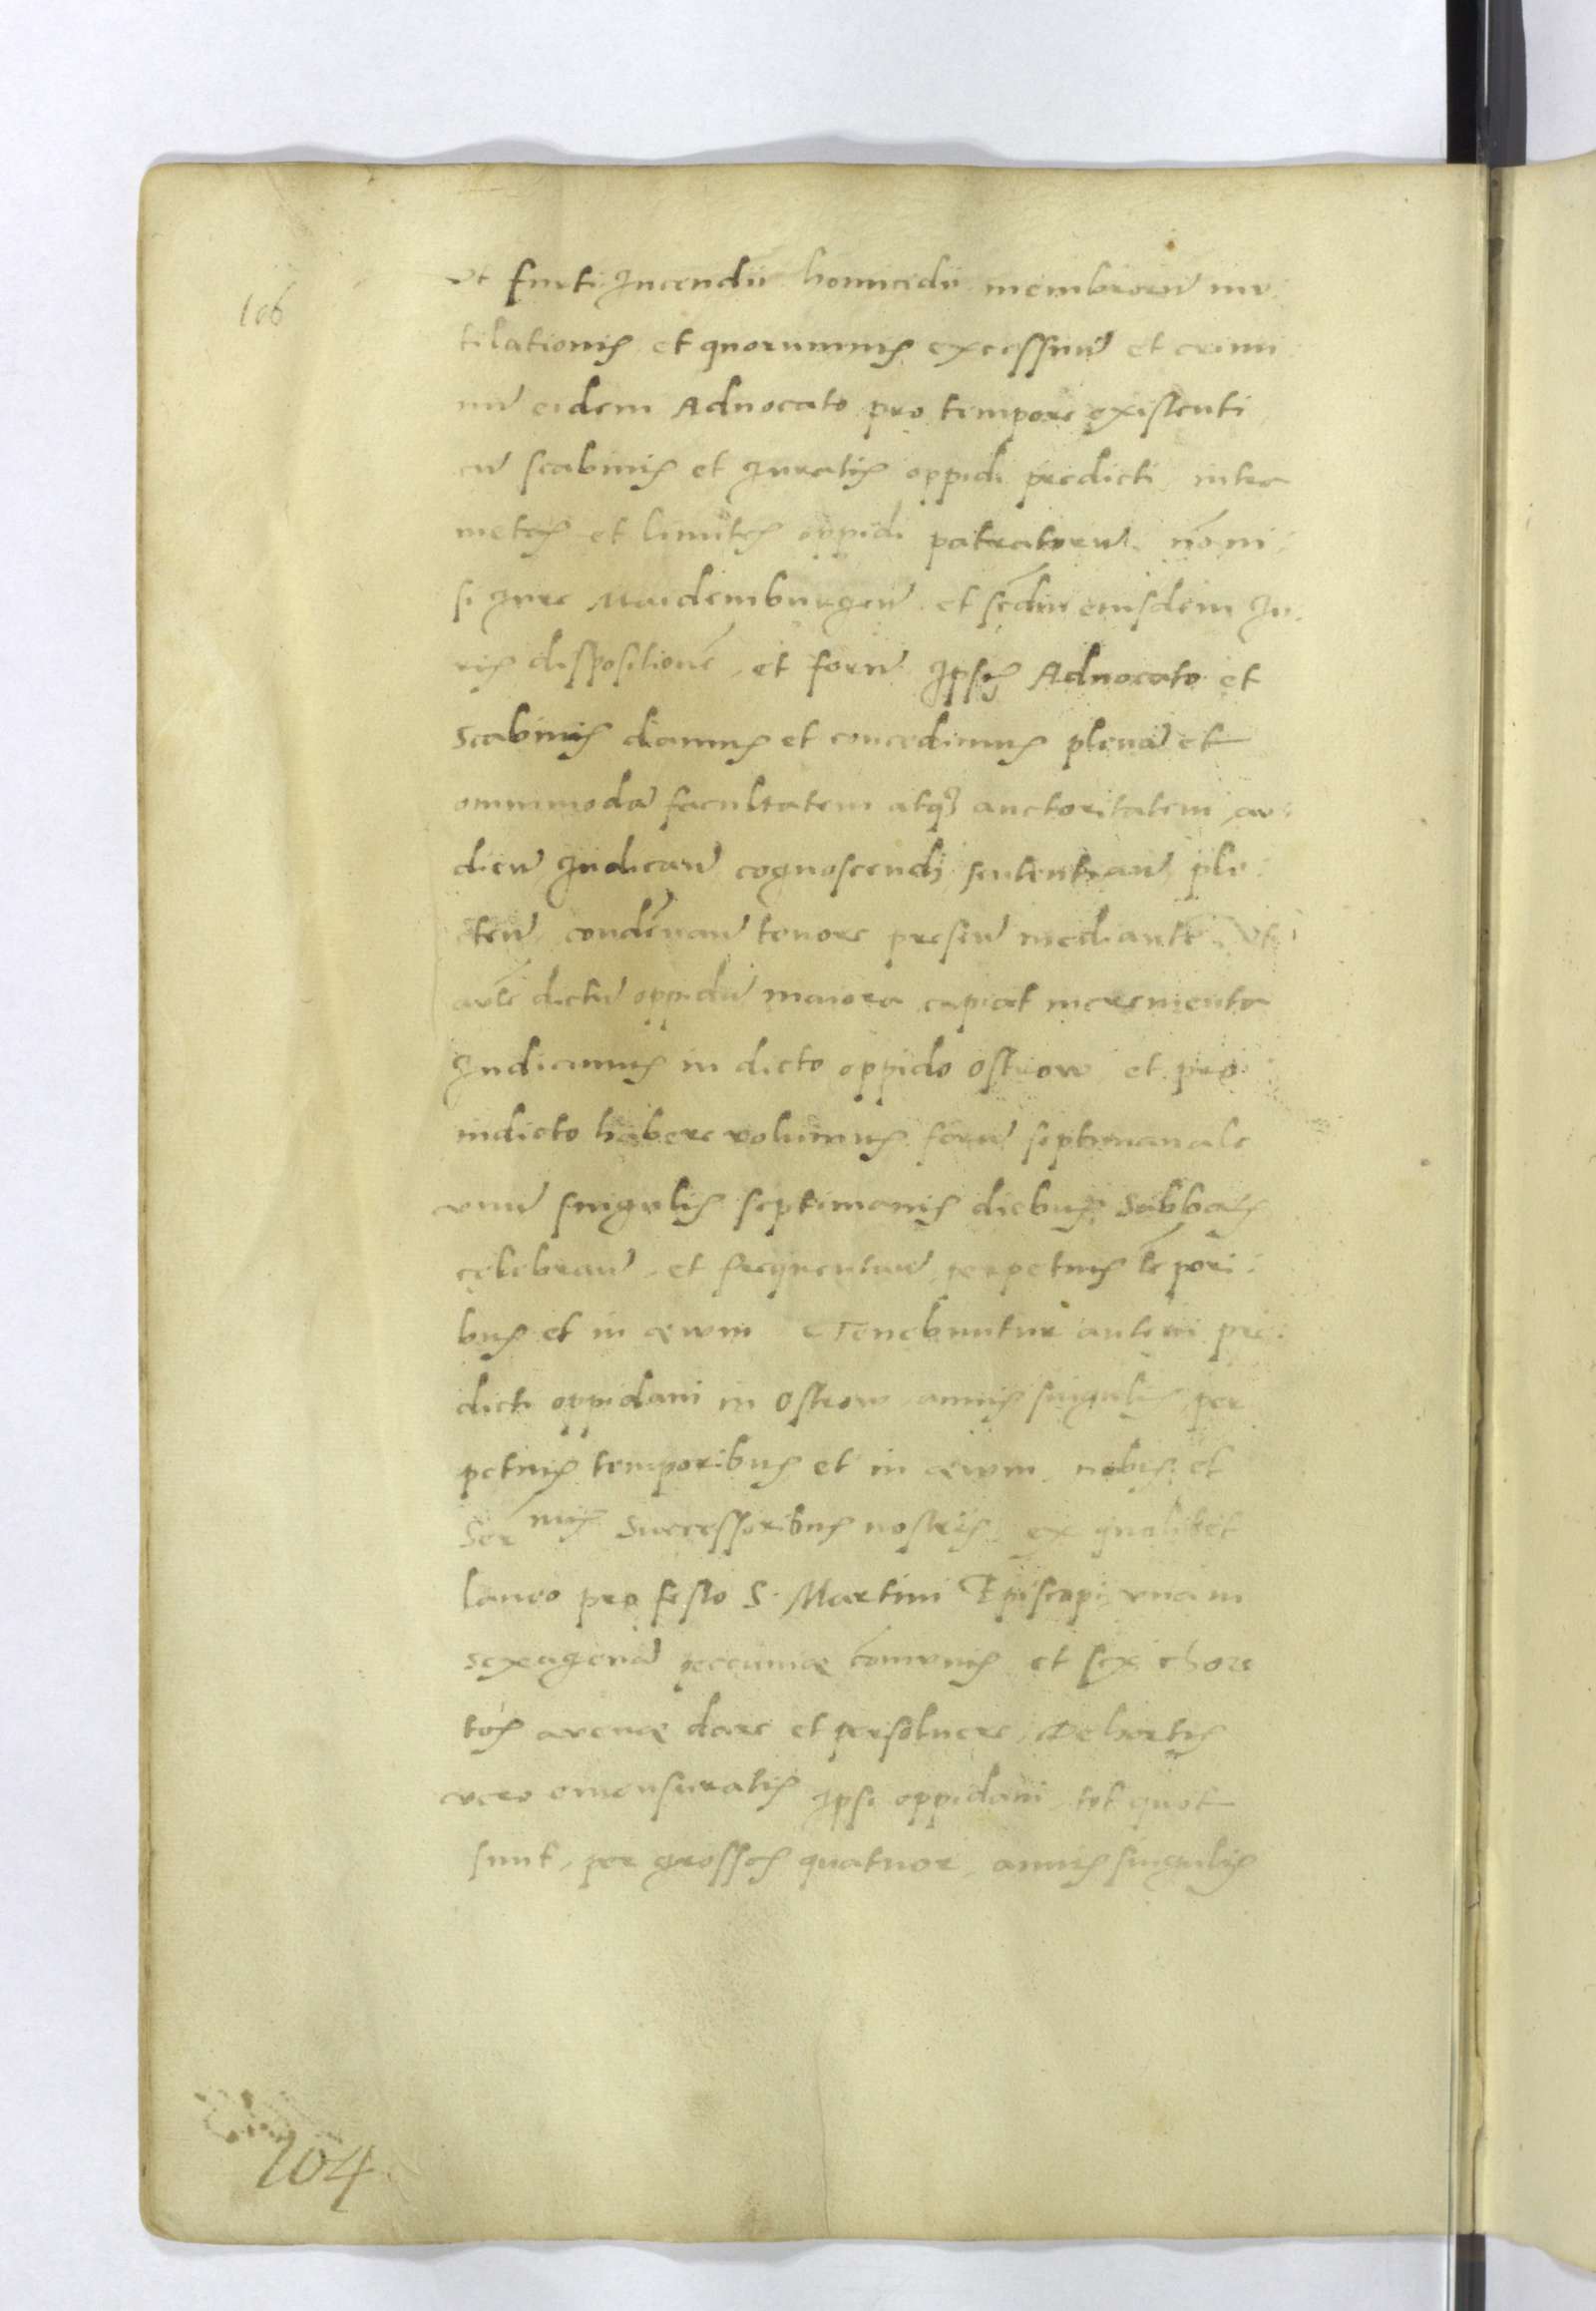 106
vt furti Incendii homicidii membrorũ mu:
tilationis et quorumuis excessuũ et crimi
nũ eidem Aduocato pro tempore existenti
cũ scabinis et Iuratis oppidi predicti inter
metas et limites oppidi patratorũ nõ ni:
si Iure Maidemburgeñ et secdũ eiusdem Iu:
ris dispositionẽ, et formã Ipsis Aduocato et
Scabinis damus et concedimus plenã et
omnimodã facultatem atq₃ auctoritatem au:
dieñ Iudicañ cognoscendj sententiañ ple:
cteñ, condẽnañ tenore preseñ mediantẽ. Vt
autẽ dictũ oppidũ maiora capiat incrementa
Indicimus in dicto oppido Ostrow et pro
indicto habere volumus forũ septimanale
vnũ singulis septimanis diebus Sabbatis
celebrañ, et frequentañ perpetuis tẽpori:
bus et in aevum Tenebuntur autem pre:
dicti oppidani in Ostrow annis singulis per
petuis temporibus et in aevum, nobis et
Ser mis Successoribus nostris, ex quolibet
laneo pro festo S. Martini Episcopi vnam
sexagenã pecuniae cõmunis et sex chore
tos avenae dare et persoluere, De hortis
vero emensuratis Ipsi oppidani, tot quot
sunt, per grossos quatuor, annis singulis
104